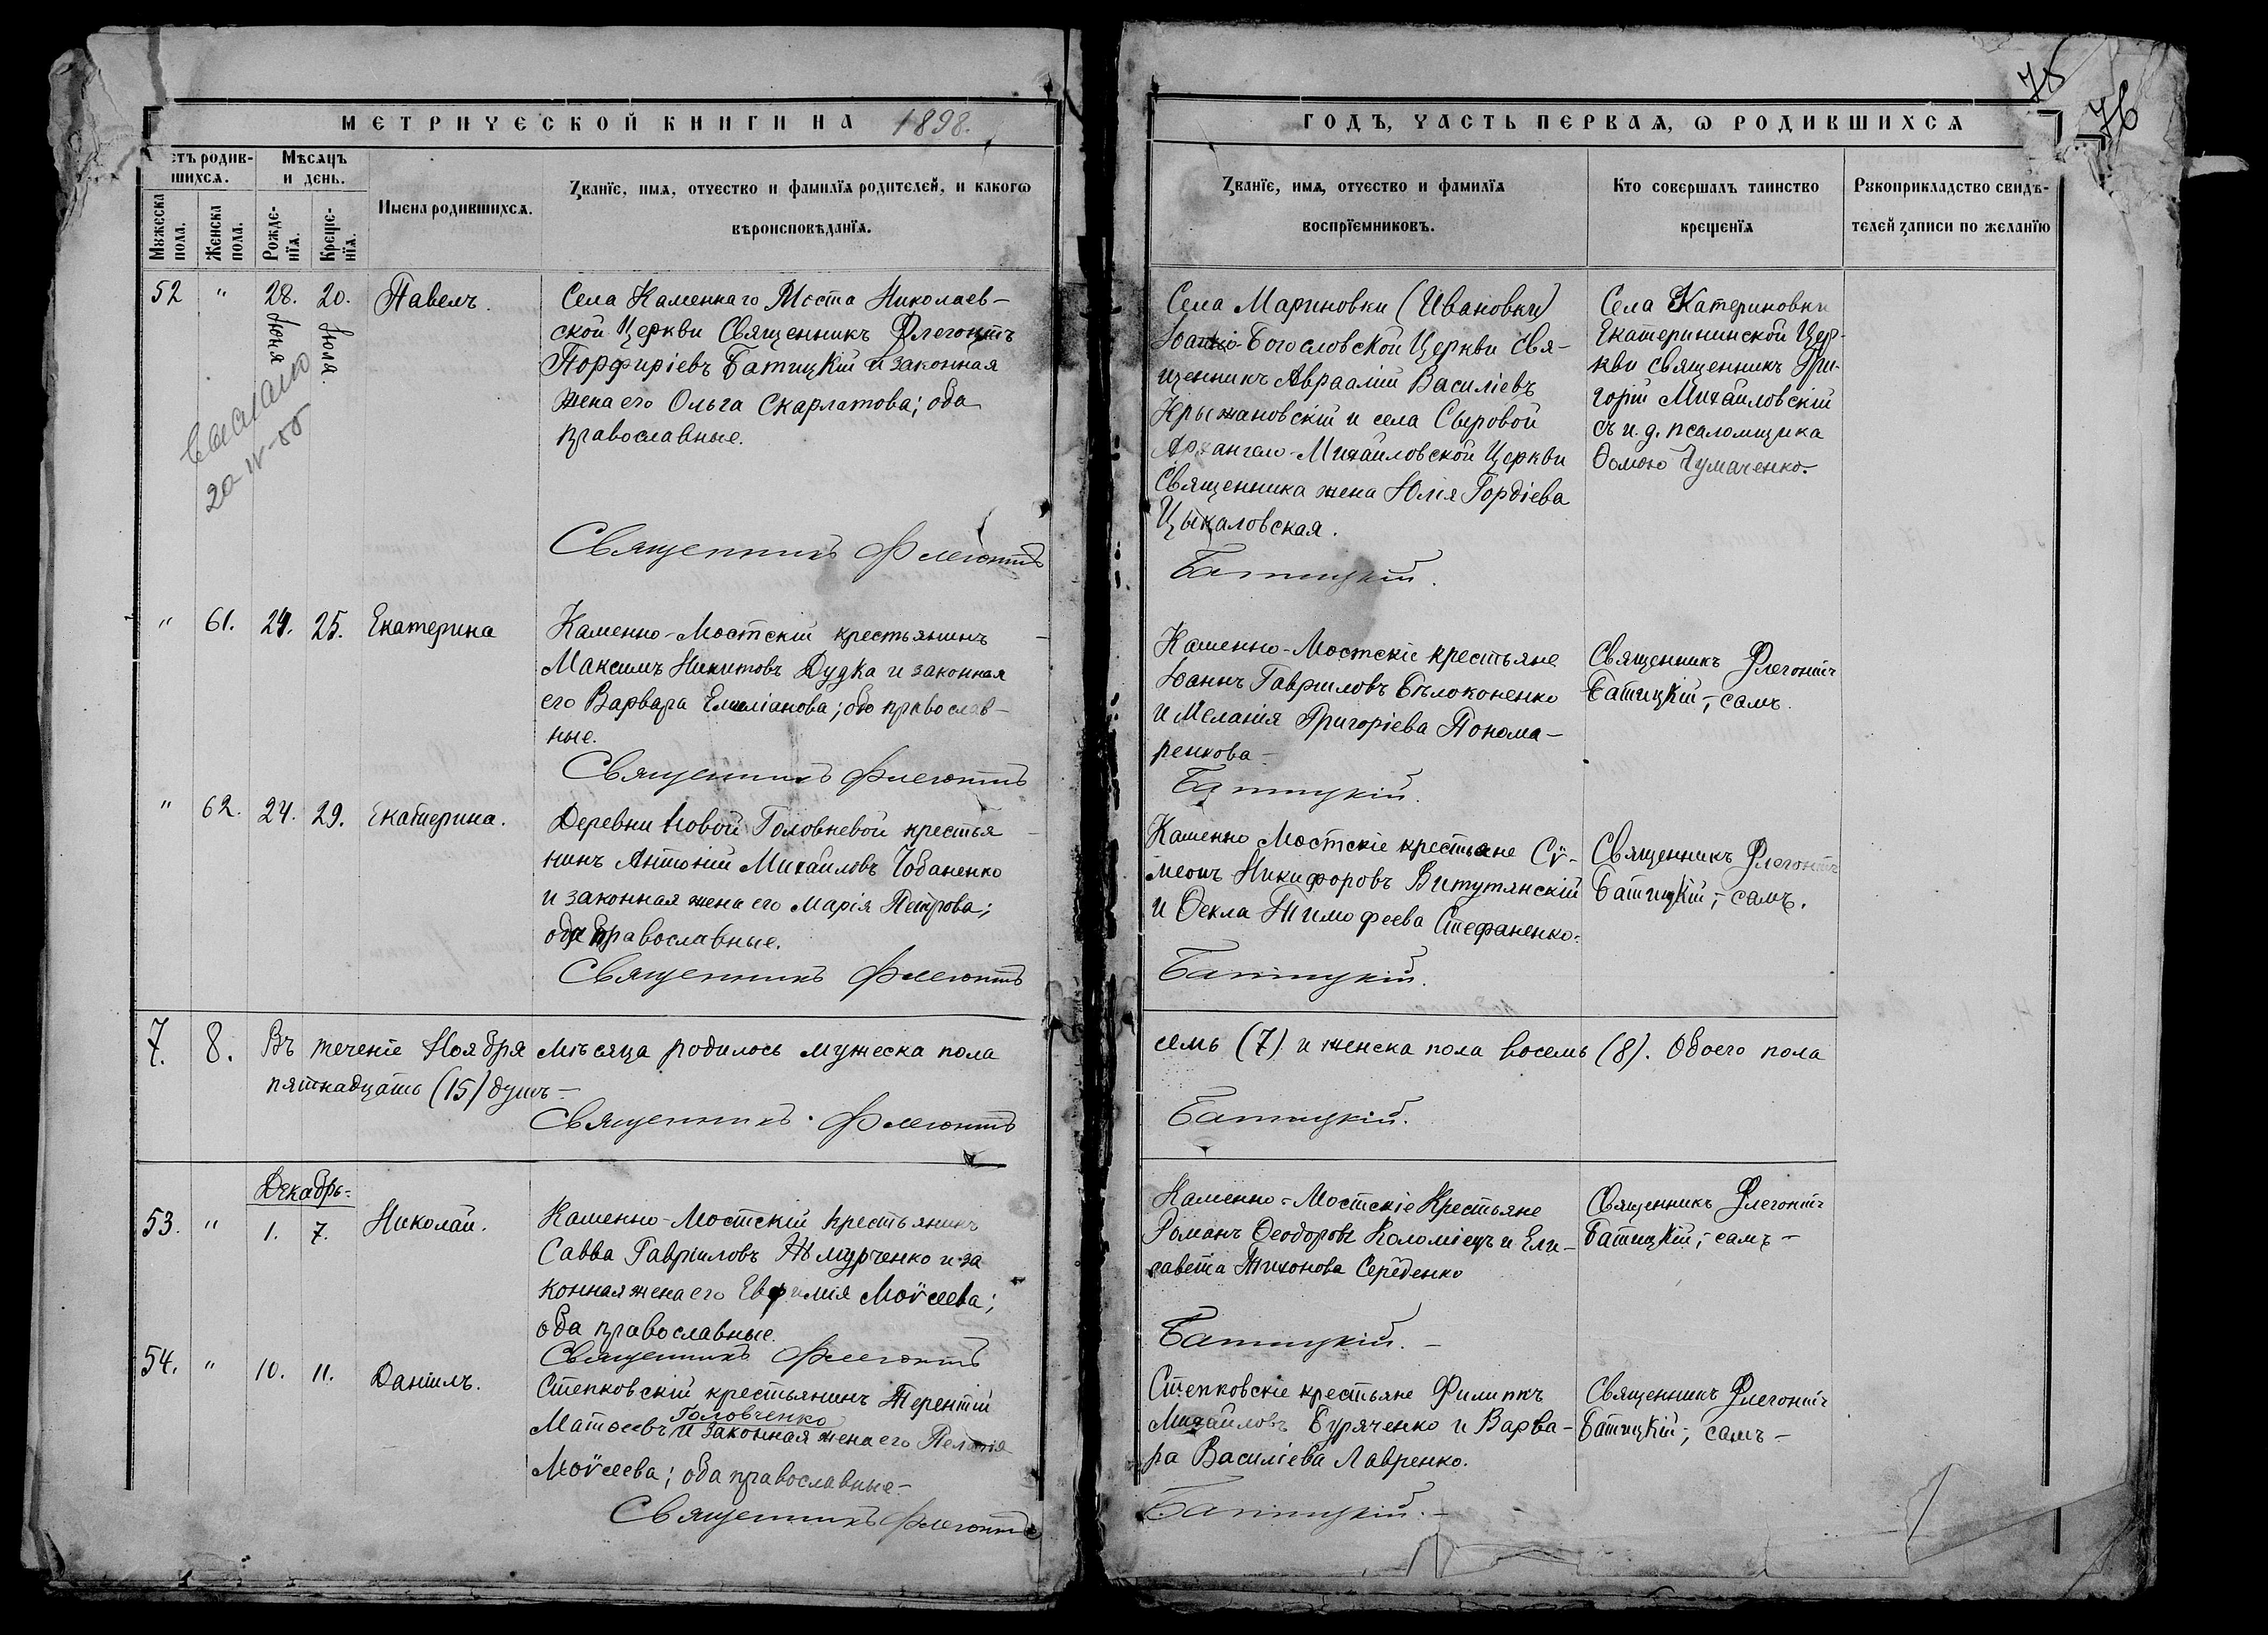 75
76
МЕТРИЧЕСКОЙ КНИГИ НА 1898.
ГОДЪ, ЧАСТЬ ПЕРВАЯ, Ѡ РОДИВШИХСЯ
етъ родив-
шихся.
Мѣсяцъ
и день.
Мужеска
пола.
Женска
пола.
Рожде-
нїя.
Креще-
нїя.
Имена родившихся.
Званїе, имя, отчество и фамилїя родителей, и какогѡ
вѣроисповѣданїя.
Званїе, имя, отчество и фамилїя
воспрїемниковъ.
Кто совершалъ таинство
крещенїя
Рукоприкладство свидѣ-
телей записи по желанїю
52 " 28. 20. Павелъ.
Іюня Іюля.
Выслано
20-IV-55
Села Каменнаго Моста Николаев-
ской Церкви Священникъ Флегонтъ
Порфиріевъ Батицкій и законная
жена его Ольга Скарлатова; оба
православные.
Священникъ Флегонтъ
Села Мариновки (Ивановки)
Іоанно-Богословской Церкви Свя-
щенникъ Авраамій Василіевъ
Крыжановскій и села Сыровой
Архангело-Михайловской Церкви
Священника жена Юлія Гордіева
Цыкаловская.
Батицкій.
Села Катериновки
Екатерининской Цер-
кви Священникъ Гри-
горій Михайловскій
съ и. д. псаломщика
Ѳомою Чумаченко.
" 61. 24. 25. Екатерина
Каменно-Мостскій крестьянинъ
Максимъ Никитовъ Дудка и законная
его Варвара Емиліанова; обо православ-
ные.
Священникъ Флегонтъ
Каменно-Мостскіе крестьяне
Іоаннъ Гавриловъ Бѣлоконенко
и Меланія Григоріева Понома-
ренкова-
Батицкій.
Священникъ Флегонтъ
Батицкій, - самъ.
" 62. 24. 29. Екатерина.
Деревни Новой Головневой крестья
нинъ Антоній Михайловъ Чобаненко
и законная жена его Марія Петрова;
оба православные.
Священникъ Флегонтъ
Каменно Мостскіе крестьяне Сѵ-
меонъ Никифоровъ Витутянскій
и Ѳекла Тимофеева Стефаненко.
Батицкій.
Священникъ Флегонтъ
Батицкій, - самъ.
7. 8. Въ теченіе Ноября мѣсяца родилось мужеска пола семь (7) и женска пола восемь (8). Обоего пола
пятнадцать (15) душъ-
Священникъ Флегонтъ Батицкій.
Декабрь.
53. " 1. 7. Николай.
Каменно-Мостскій крестьянинъ
Савва Гавріиловъ Жмурченко и за
конная жена его Евфимія Моѵсеева;
оба православные.
Священникъ Флегонтъ
Каменно-Мостскіе Крестьяне
Романъ Ѳеодоровъ Коломіецъ и Ели-
савета Тихонова Середенко
Батицкій.
Священникъ Флегонтъ
Батицкій, - самъ -
54. " 10. 11. Даніилъ.
Степковскій крестьянинъ Терентій
Головченко
Матѳеевъ и законная жена его Пелагія
Моѵсеева; оба православные-
Священникъ Флегонтъ
Степковскіе крестьяне Филиппъ
Михайловъ Буряченко и Варва-
ра Василіева Лавренко.
Батицкій.
Священникъ Флегонтъ
Батицкій, - самъ -